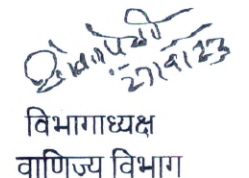 27/9/23
विभागाध्यक्ष
वाणिज्य विभाग